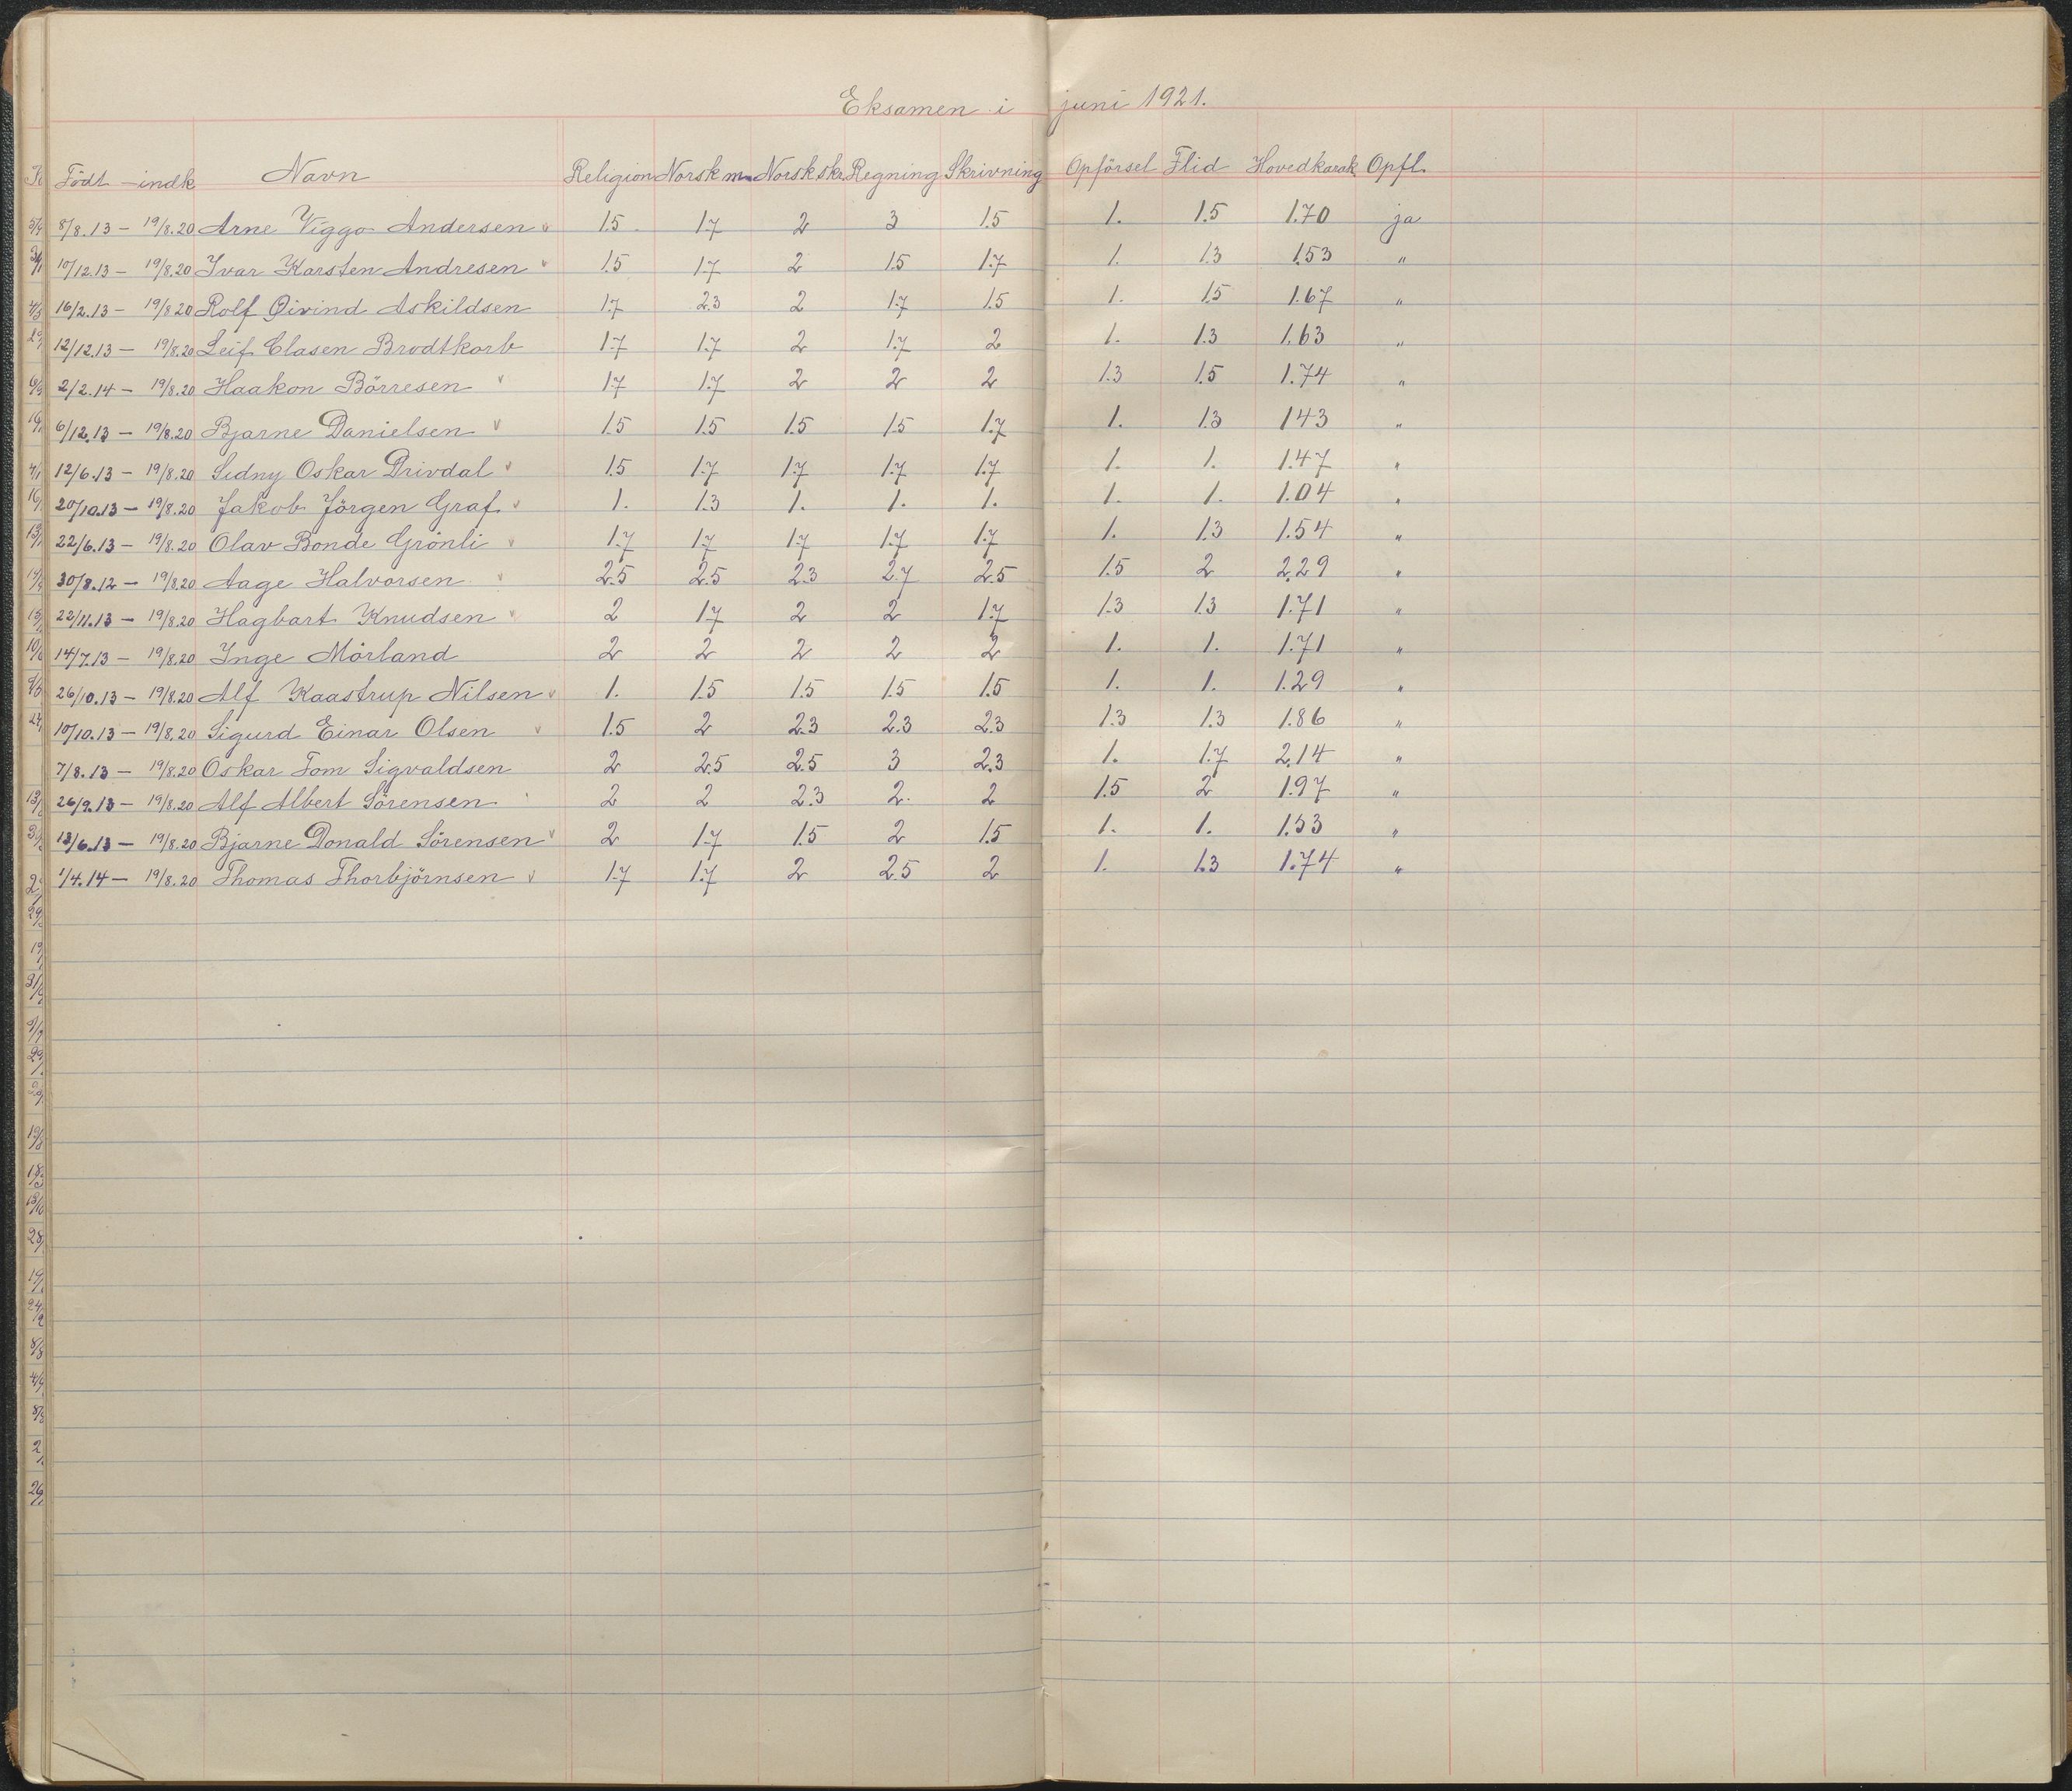 Eksamen i juni 1921.
Födt - indk Navn Religion Norsk m. Norsk skr. Regning Skrivning Opförsel Flid Hovedkarak Opfl.
8/8.13 - 19/8.20 Arne Viggo Andersen v 1.5 1.7 2 3 1.5 1. 1.5 1.70 ja
10/12.13 - 19/8.20 Ivar Karsten Andresen v 1.5 1.7 2 1.5 1.7 1. 1.3 1.53 "
16/2.13 - 19/8.20 Rolf Øivind Askildsen 1.7 2.3 2 1.7 1.5 1. 1.5 1.67 "
12/12.13 - 19/8.20 Leif Clasen Brodtkorb 1.7 1.7 2 1.7 2 1. 1.3 1.63 "
2/2.14 - 19/8.20 Haakon Börresen v 1.7 1.7 2 2 2 1.3 1.5 1.74 "
6/12.13 - 19/8.20 Bjarne Danielsen v 1.5 1.5 1.5 1.5 1.7 1. 1.3 1.43 "
12/6.13 - 19/8.20 Sidny Oskar Drivdal v 1.5 1.7 1.7 1.7 1.7 1. 1. 1.47 "
20/10.13 - 19/8.20 Jakob Jörgen Graf. v 1. 1.3 1. 1. 1. 1. 1. 1.04 "
22/6.13 - 19/8.20 Olav Bonde Grönli v 1.7 1.7 1.7 1.7 1.7 1. 1.3 1.54 "
30/8.12 - 19/8.20 Aage Halvorsen v 2.5 2.5 2.3 2.7 2.5 1.5 2 2.29 "
22/11.13 - 19/8.20 Hagbart Knudsen v 2 1.7 2 2 1.7 1.3 1.3 1.71 "
14/7.13 - 19/8.20 Inge Mörland 2 2 2 2 2 1. 1. 1.71 "
26/10.13 - 19/8.20 Alf Kaastrup Nilsen v 1. 1.5 1.5 1.5 1.5 1. 1. 1.29 "
10/10.13 - 19/8.20 Sigurd Einar Olsen v 1.5 2 2.3 2.3 2.3 1.3 1.3 1.86 "
7/8.13 - 19/8.20 Oskar Tom Sigvaldsen 2 2.5 2.5 3 2.3 1. 1.7 2.14 "
26/9.13 - 19/8.20 Alf Albert Sörensen 2 2 2.3 2. 2 1.5 2 1.97 "
13/6.13 - 19/8.20 Bjarne Donald Sörensen v 2 1.7 1.5 2 1.5 1. 1. 1.53 "
1/4.14 - 19/8.20 Thomas Thorbjörnsen v 1.7 1.7 2 2.5 2 1. 1.3 1.74 "